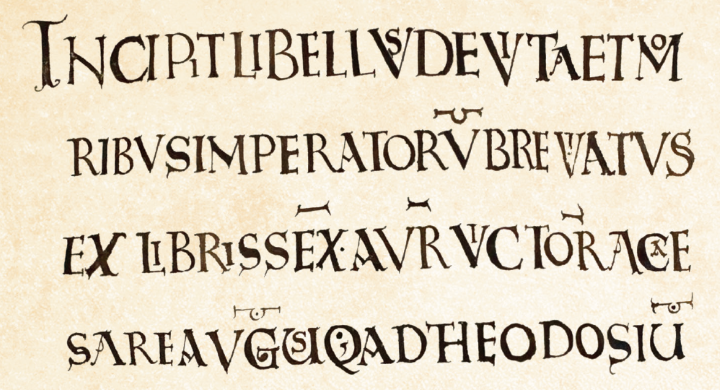 INCIPIT LIBELLVS DE VITA ET MO
RIBVS IMPERATORV̅ BREVIATVS
EX LIBRIS SEX̅· AVR̅ VICTOR̅ A CAE
SARE AVG̅ USQ; AD THEODOSIU̅